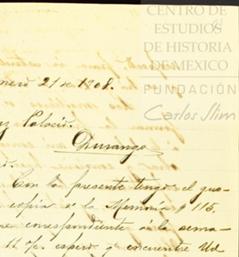 CENTRO DE
ESTUDIOS
DE HISTORIA
DE MEXICO
FUNDACIÓN
Carlos Slim
nero 21 de 1908.
Palacio.
Durango
Con la presente tengo el gus-
copia a la Memoria # 115.
correspondiente a la sema-
espero q. encuentre Ud